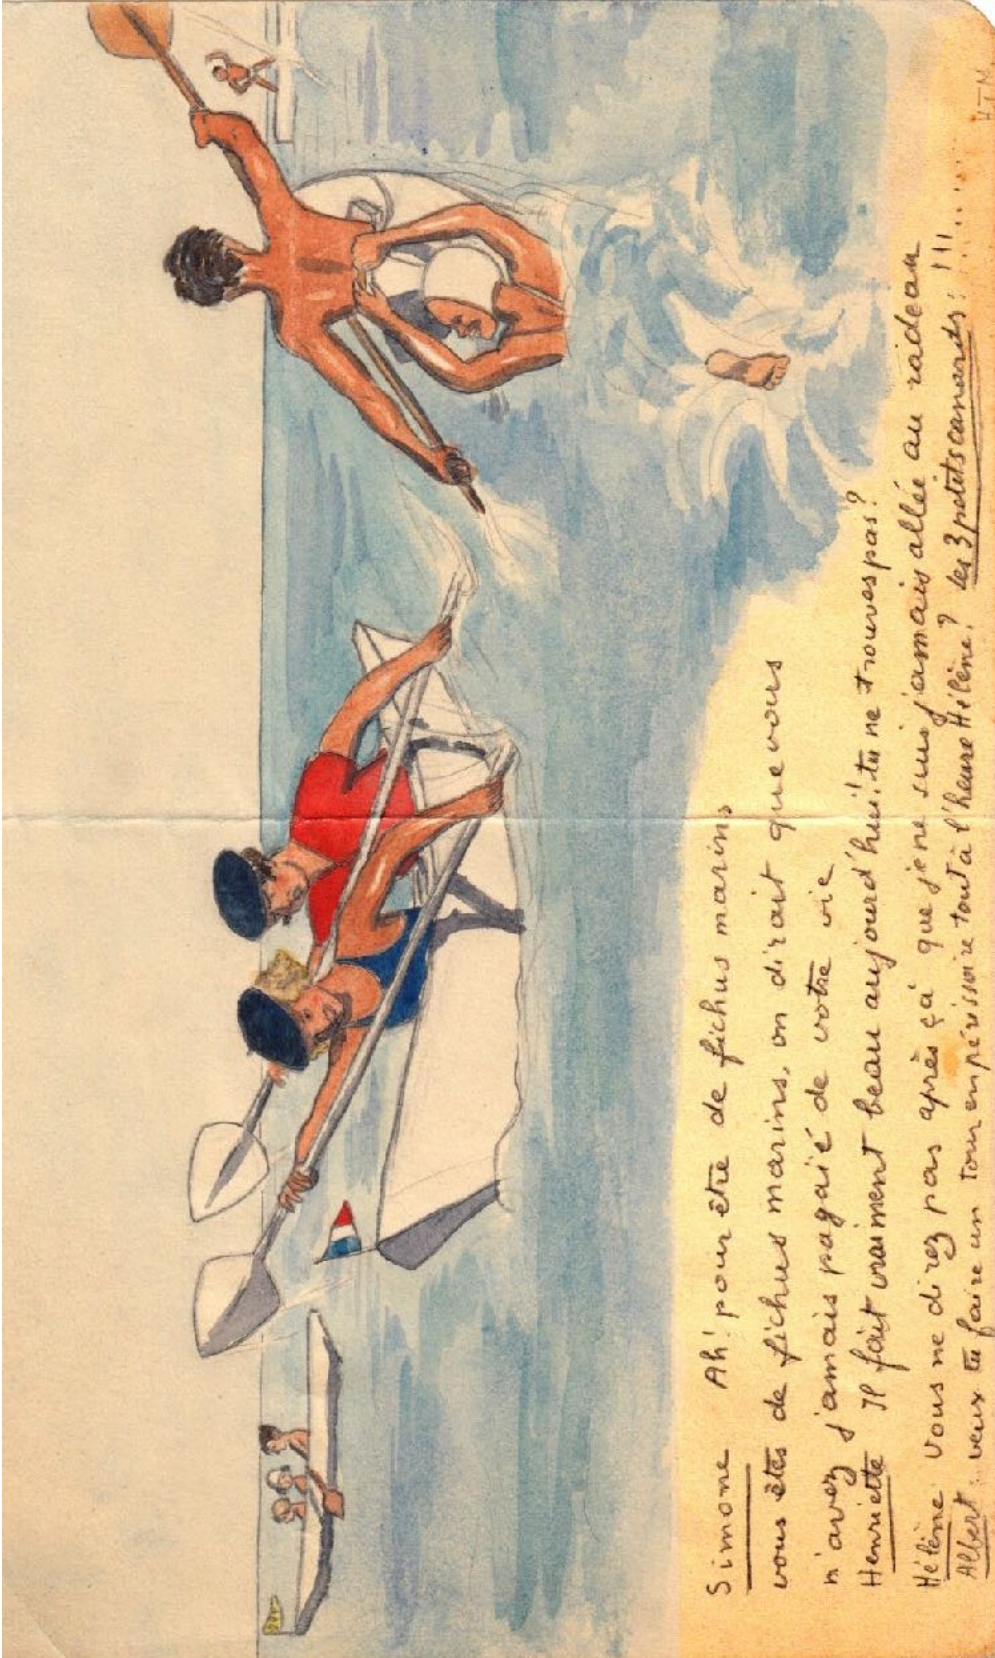 Simone Ah! pour être de fichus marins
vous êtes de fichus marins, on dirait que vous
n'avez jamais pagaié de votre vie
Henriette Il fait vraiment beau aujourd'hui! tu ne trouves pas?
Hélène vous ne direz pas après ça que je ne suis jamais allée au radeau
Albert: veux tu faire un tour en périssoire tout à l'heure Hélène? les 3 petits canards: !!!......
HJM